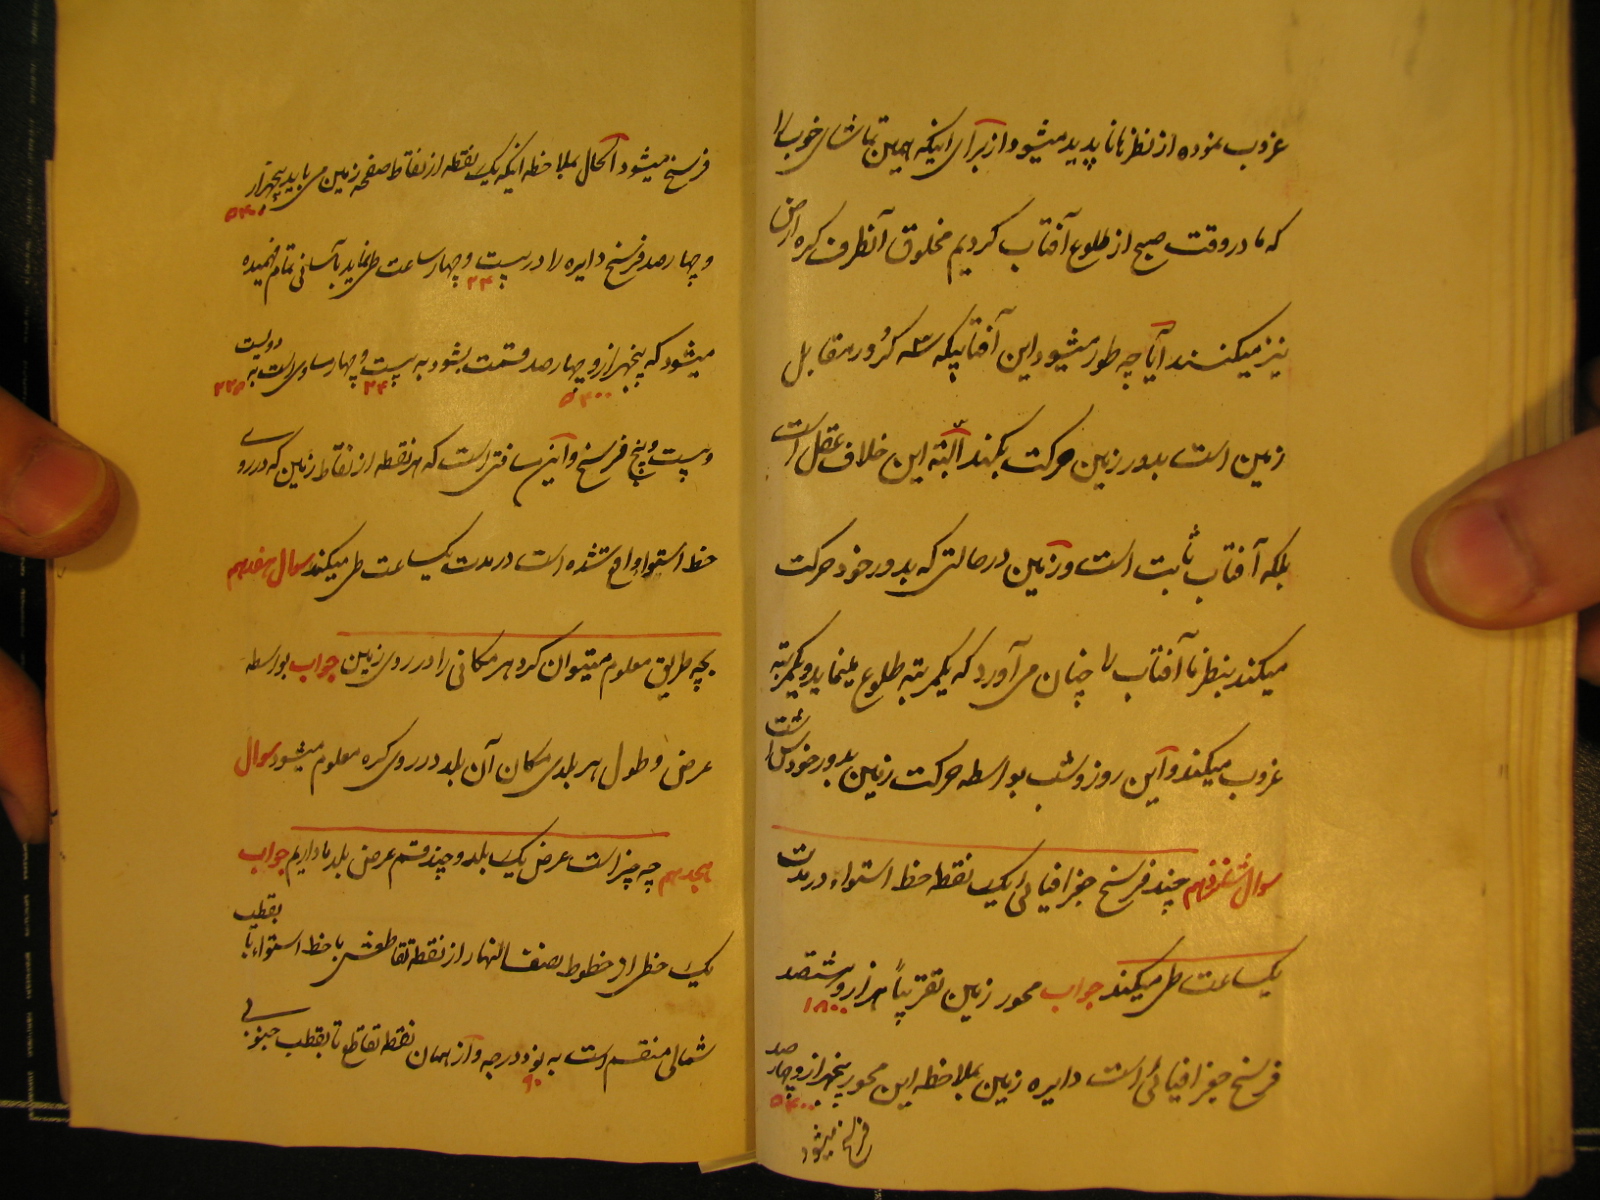 غروب نموده از نظر ما ناپدید میشود از برای اینکه همین تماشای خوب را
که ما در وقت صبح از طلوع آفتاب کردیم مخلوق آنطرف کره ارض
نیز میکنند آیا چه طور میشود این آفتابیکه ۳۴ کرور مقابل
زمین است بدور زمین حرکت بکند البته این خلاف عقل است
بلکه آفتاب ثابت است و زمین در حالتی که بدور خود حرکت
میکند بنظر ما آفتاب را چنان می آورد که یکمرتبه طلوع مینماید و یکمرتبه
غروب میکند و این روز و شب بواسطه حرکت زمین بدور خودش است
سوال شانزدهم چند فرسخ جغرافیائی یک نقطه خط استواء در مدت
یکساعت طی میکند جواب محور زمین تقریباً هزار و هشتصد
۱۸۰۰
فرسخ جغرافیائی است دایره زمین بملاحظه این محور پنجهزار و چهار صد
۵۴۰۰
فرسخ میشود
فرسخ میشود الحال بملاحظه اینکه یک نقطه از نقاط صفحه زمین می باید پنجهزار
۵۴۰۰
و چهار صد فرسخ دایره را در بیست و چهار ساعت طی نماید بآسانی تمام فهمیده
۲۴
میشود که پنجهزار و چهار صد قسمت بشود به بیست و چهار مساوی است به دویست
۵۴۰۰ ۲۴ ۲۲۵
و بیست و پنج فرسخ و این مسافتی است که هر نقطه از نقاط زمین که در روی
خط استواء واقع شده است در مدت یکساعت طی میکند سوال هفدهم
بچه طریق معلوم میتوان کرد هر مکانی را در روی زمین جواب بواسطه
عرض و طول هر بلدی مکان آن بلد در روی کره معلوم میشود سوال
هیجدهم چه چیز است عرض یک بلد و چند قسم عرض بلد ما داریم جواب
یک خطی از خطوط نصف النهار از نقطه تقاطعش با خط استواء تا بقطب
شمالی منقسم است به نود درجه و از همان نقطه تقاطع تا بقطب جنوبی
۹۰